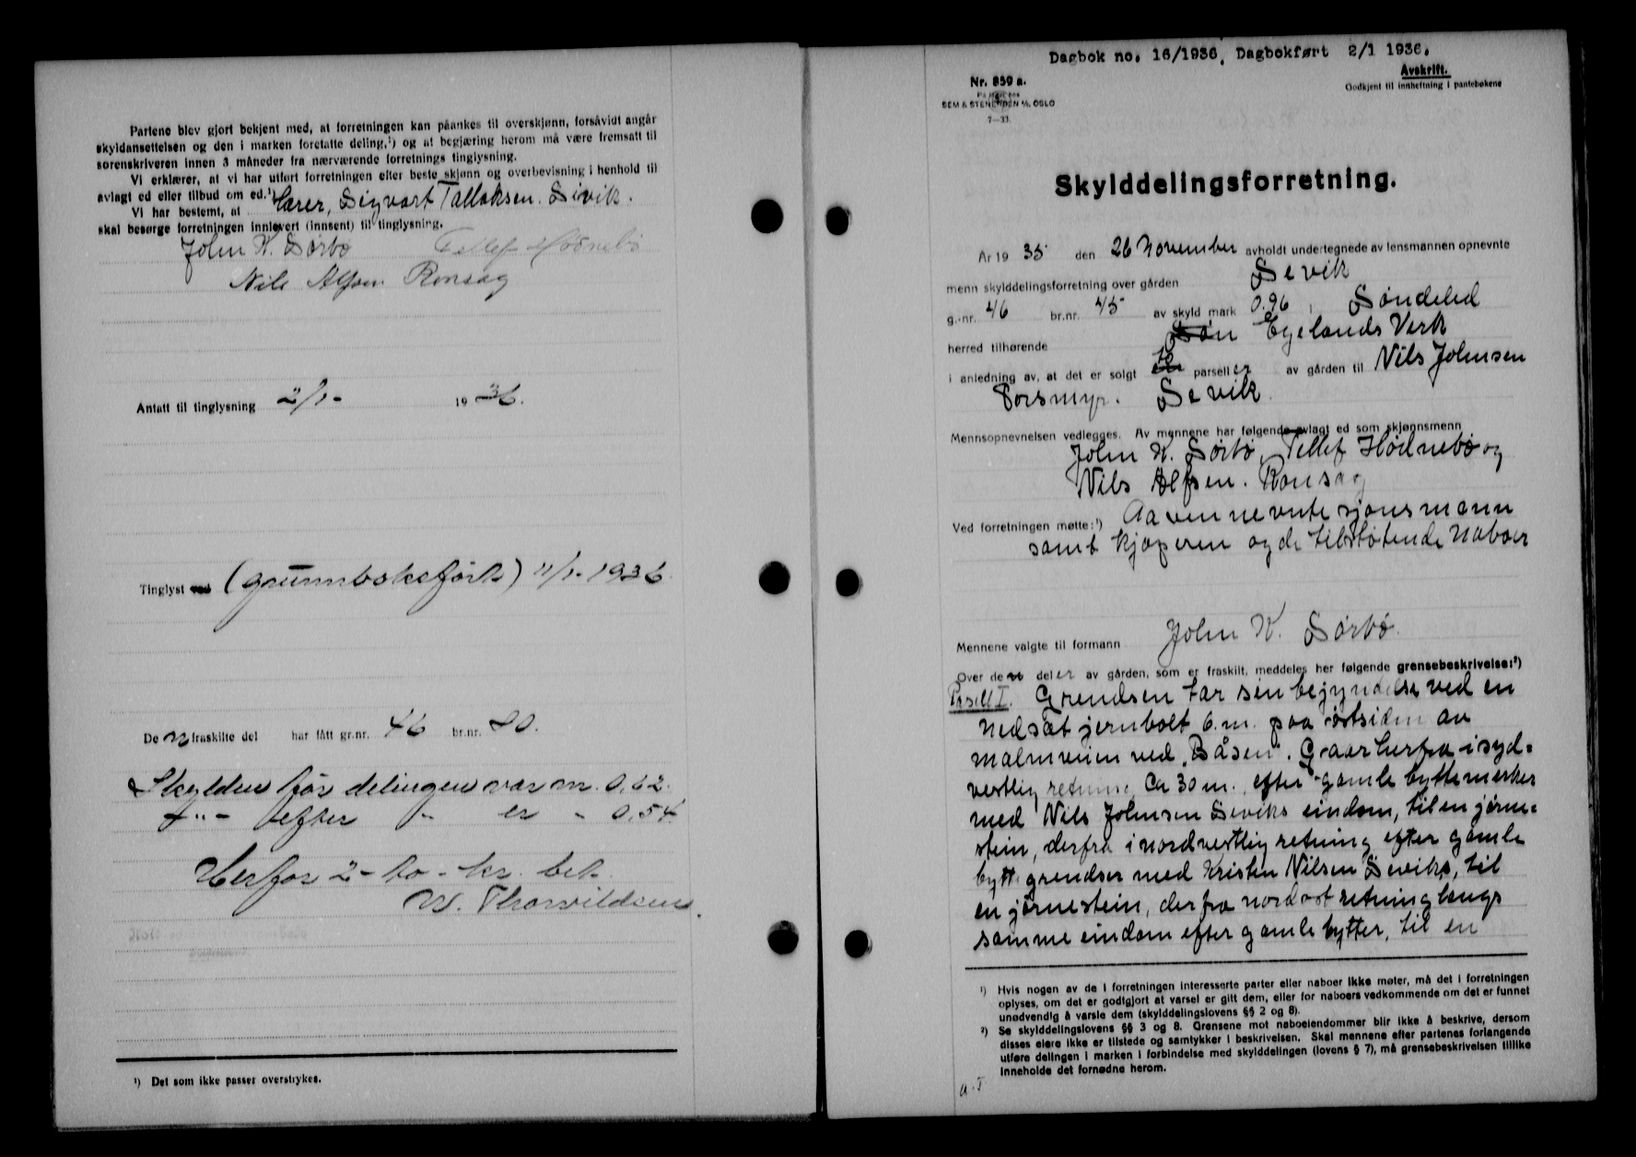 Partene blev gjort bekjent med, at forretningen kan påankes til overskjønn, forsåvidt angår
skyldansettelsen og den i marken foretatte deling,¹) og at begjæring herom må være fremsatt til
sorenskriveren innen 3 måneder fra nærværende forretnings tinglysning.
Vi erklærer, at vi har utført forretningen efter beste skjønn og overbevisning i henhold til
avlagt ed eller tilbud om ed.¹)
Vi har bestemt, at Lærer, Sigvart Tallaksen. Sivik.
skal besørge forretningen innlevert (innsent) til tinglysning.
John K. Sørbø Tellef Hødnebø
Nils Alfsen Ronsag
Antatt til tinglysning 2/1- 1936.
Tinglyst ved (grunnboksført) 11/1-1936
De n fraskilte del har fått gr.nr. 46 br.nr. 80.
Skylden før delingen var m. 0,62.
-"- efter " er " 0,54.
Herfor 2 - to - kr. bet.
W. Thorvildsen.
¹) Det som ikke passer overstrykes.
Dagbok no. 16/1936, Dagbokført 2/1 1936.
Nr. 859 a.
Avskrift.
Godkjent til innheftning i pantebøkene
SEM & STENERSEN A/S, OSLO
7—33
Skylddelingsforretning.
År 1935 den 26 November avholdt undertegnede av lensmannen opnevnte
menn skylddelingsforretning over gården Sevik
g.-nr. 46 br.nr. 45 av skyld mark 0.96 i Søndeled
herred tilhørende Egelands Verk
i anledning av, at det er solgt to parseller av gården til Nils Johnsen
Porsmyr. Sevik.
Mennsopnevnelsen vedlegges. Av mennene har følgende avlagt ed som skjønnsmenn
John K. Sørbø, Tellef Hødnebø og
Nils Alfsen. Ronsag
Ved forretningen møtte:¹) Aavennevnte sjønsmænn
samt kjøperen og de tilstøtende naboer
Mennene valgte til formann John K. Sørbø.
Over de n deler av gården, som er fraskilt, meddeles her følgende grensebeskrivelse:²)
Parsell I. Grendsen tar sin begyndelse ved en
nedsat jernbolt 6. m. paa østsiden av
malmveien ved "Båsen". Gaar herfra i syd-
vestlig retning ca 30 m., efter gamle byttemerker
med Nils Johnsen Seviks eindom, til en jørne-
stein, derfra i nordvestlig retning efter gamle
bytt grendser med Kristen Nilsen Seviks, til
en jørnestein, derfra nordøst retning langs
samme eindom efter gamle bytter, til en
¹) Hvis nogen av de i forretningen interesserte parter eller naboer ikke møter, må det i forretningen
oplyses, om det er godtgjort at varsel er gitt dem, eller for naboers vedkommende om det er funnet
unødvendig å varsle dem (skylddelingslovens §§ 2 og 8).
²) Se skylddelingslovens §§ 3 og 8. Grensene mot naboeiendommer blir ikke å beskrive, dersom
disses eiere ikke er tilstede og samtykker i beskrivelsen. Skal mennene efter partenes forlangende
utføre delingen i marken i forbindelse med skylddelingen (lovens § 7), må grensebeskrivelsen tillike
inneholde det fornødne herom.